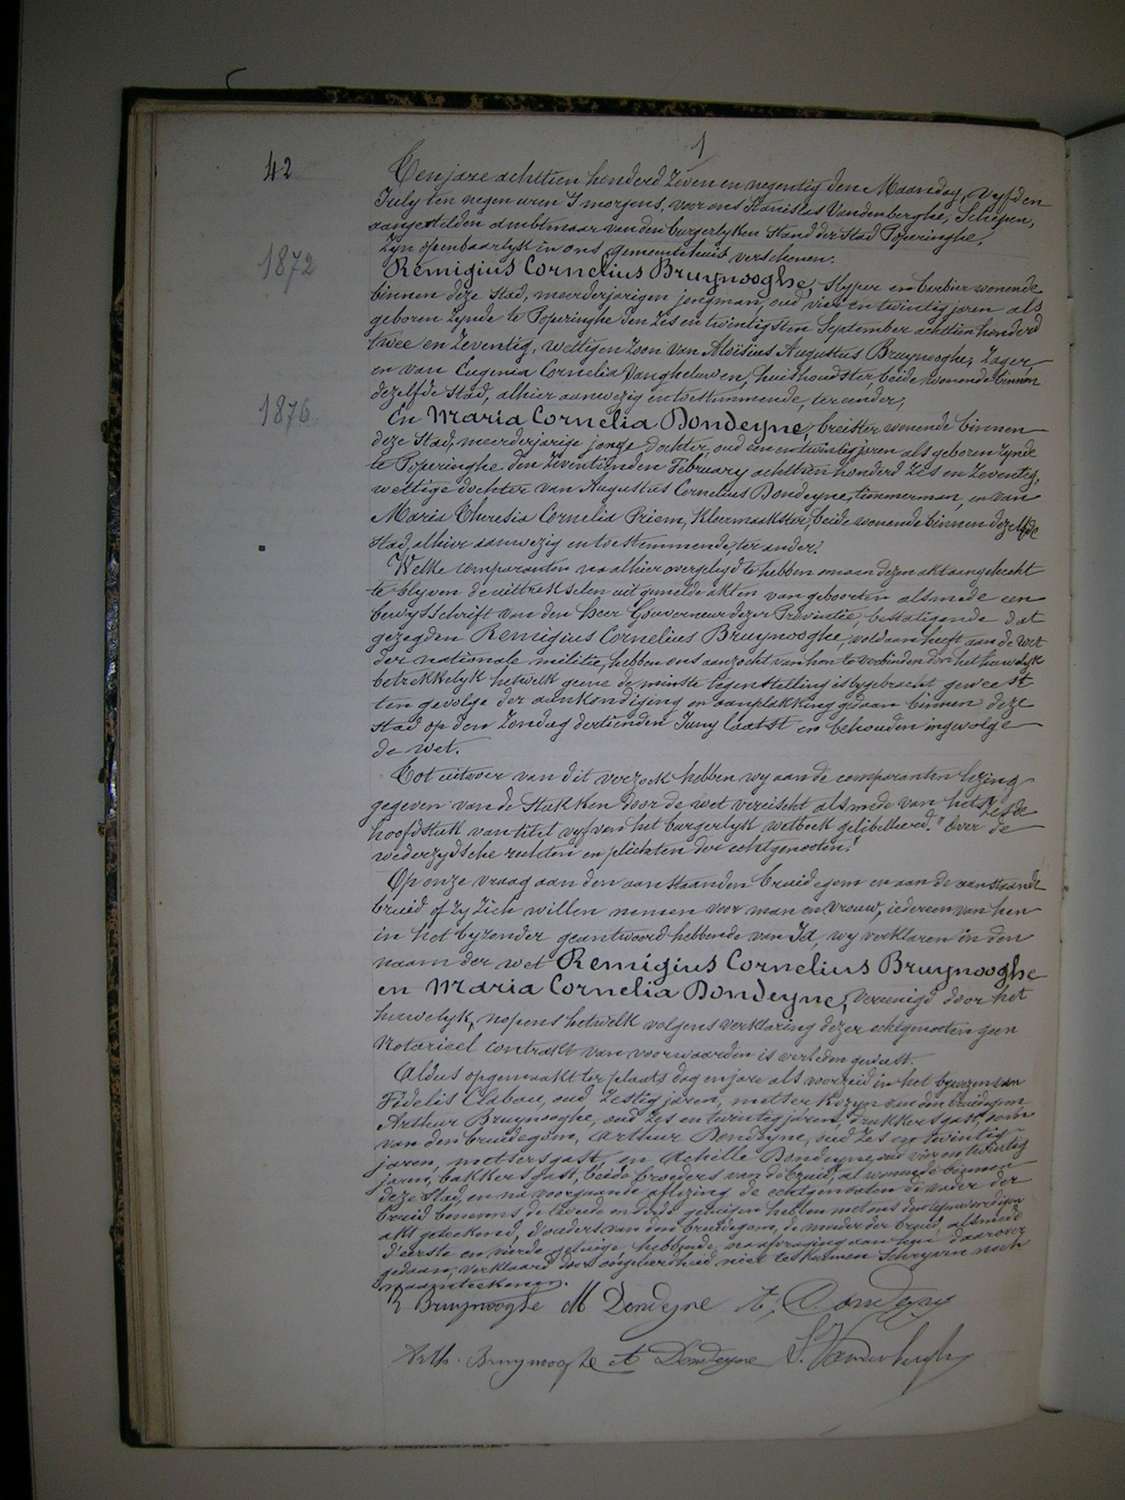 1
42
Ten jare achttien honderd zeven en negentig den Maandag, vyfden
July ten negen uren 's morgens, voor ons Stanislas Vandenberghe, Schepen,
aangestelden ambtenaar van den burgerlyken Stand der Stad Poperinghe,
zyn openbaarlyk in ons gemeentehuis verschenen:
1872
Remigius Cornelius Bruynooghe, wonende
binnen deze Stad, meerderjarigen jongman, oud vier en twintig jaren als
geboren zynde te Poperinghe den zes en twintigsten September achttien honderd
twee en zeventig, wettigen zoon van Aloïsius Augustus Bruynooghe, zager,
en van Eugenia Cornelia Vangheluwen, huishoudster beide wonende binnen
dezelfde Stad, alhier aanwezig en toestemmende, ter eender,
1876
En Maria Cornelia Dondeyne, breister wonende binnen
deze Stad, meerderjarige jonge dochter, oud een en twintig jaren als geboren zynde
te Poperinghe den zeventienden February achttien honderd zes en zeventig,
wettige dochter van Augustus Cornelius Dondeyne, timmerman, en van
Maria Theresia Cornelia Priem, Kleermaakster, beide wonende binnen dezelfde
stad, alhier aanwezig en toestemmende, ter ander.
Welke comparanten na alhier overgelegd te hebben om aan dezen akt aangehecht
te blyven de uittrekselen uit gemelde akten van geboorten alsmede een
bewysschrift van den Heer Gouverneur dezer Provintie, bestatigende dat
gezegden Remigius Cornelius Bruynooghe, voldaan heeft aan de wet
der nationale militie, hebben ons aanzocht van hen te verbinden door het huwelyk
betrekkelyk hetwelk geene de minste tegenstelling is bygebracht geweest
ten gevolge der aankondiging en aanplakking gedaan binnen deze
stad op den Zondag dertienden Juny laatst en behouden ingevolge
de wet.
Tot uitvoer van dit verzoek hebben wy aan de comparanten lezing
gegeven van de Stukken door de wet vereischt alsmede van het zesde
hoofdstuk van titel vyf van het burgerlyk wetboek gelibelleerd: "Over de
wederzydsche rechten en plichten der echtgenooten."
Op onze vraag aan den aanstaanden bruidegom en aan de aanstaande
bruid of zy zich willen nemen voor man en vrouw, iedereen van hen
in het byzonder geantwoord hebbende van Ja, wy verklaren in den
naam der wet Remigius Cornelius Bruynooghe
en Maria Cornelia Dondeyne, vereenigd door het
huwelyk, nopens hetwelk volgens verklaring dezer echtgenooten geen
Notarieel contrakt van voorwaarden is verleden geweest.
Aldus opgemaakt ter plaats dag en jare als voorzeid in het bywezen van
Fidelis Clabau, oud zestig jaren, metser kozyn van den bruidegom
Arthur Bruynooghe, oud zes en twintig jaren, drukkersgast, oom
van den bruidegom, Arthur Dondeyne, oud zes en twintig
jaren, metsersgast, en Achille Dondeyne, oud vier en twintig
jaren, bakkersgast, beide broeders van de bruid, al wonende binnen
deze Stad, en na voorgaande aflezing de echtgenooten de vader der
bruid benevens de tweede en derde getuigen hebben met ons den tegenwoordigen
akt geteekend, d'ouders van den bruidegom, de moeder der bruid, alsmede
d'eerste en vierde getuige, hebbende, na afvraging aan hun daarover
gedaan, verklaard door ongeleerdheid niet te kunnen schryven noch
naamteekenen.
R Bruynooghe M Dondeyne A, Dondeyne
Arth. Bruynooghe A Dondeyne S. Vandenberghe